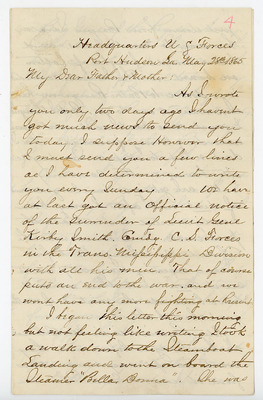 4
Headquarters U S Forces
Port Hudson La May 28th 1865
My Dear Father & Mother!
As I wrote
you only two days ago I havent
got much news to send you
today I suppose However that
I must send you a few lines
as I have determined to write
you every Sunday We have
at last got an Official notice
of the surrender of Lieut Genl
Kirby Smith, Comdg C. S. Forces
in the Trans. Mississippi Division
with all his men. That of course
puts an end to the war, and we
wont have any more fighting at present
I began this letter this morning
but not feeling like writing I took
a walk down to the Steamboat
Landing and went on board the
Steamer "Bella Donna". She was